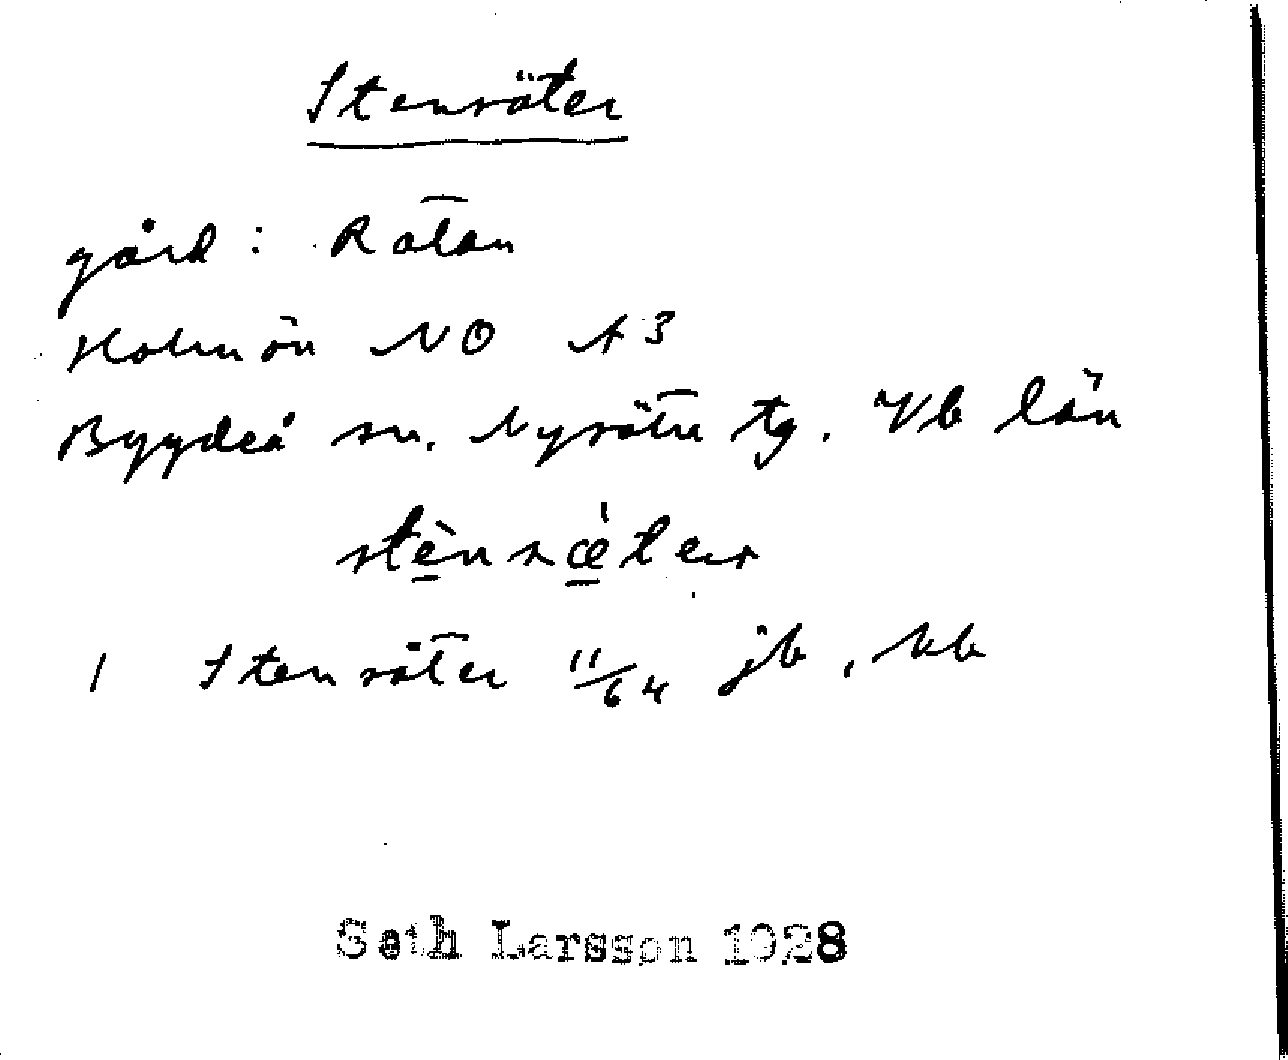 Stensäter
gård: Ratan
Holmön NO A3
Bygdeå sn. Nysätra tg. Vb län
stènsæ̀ter
1 Stensäter 11/64 jb, kb
Seth Larsson 1928